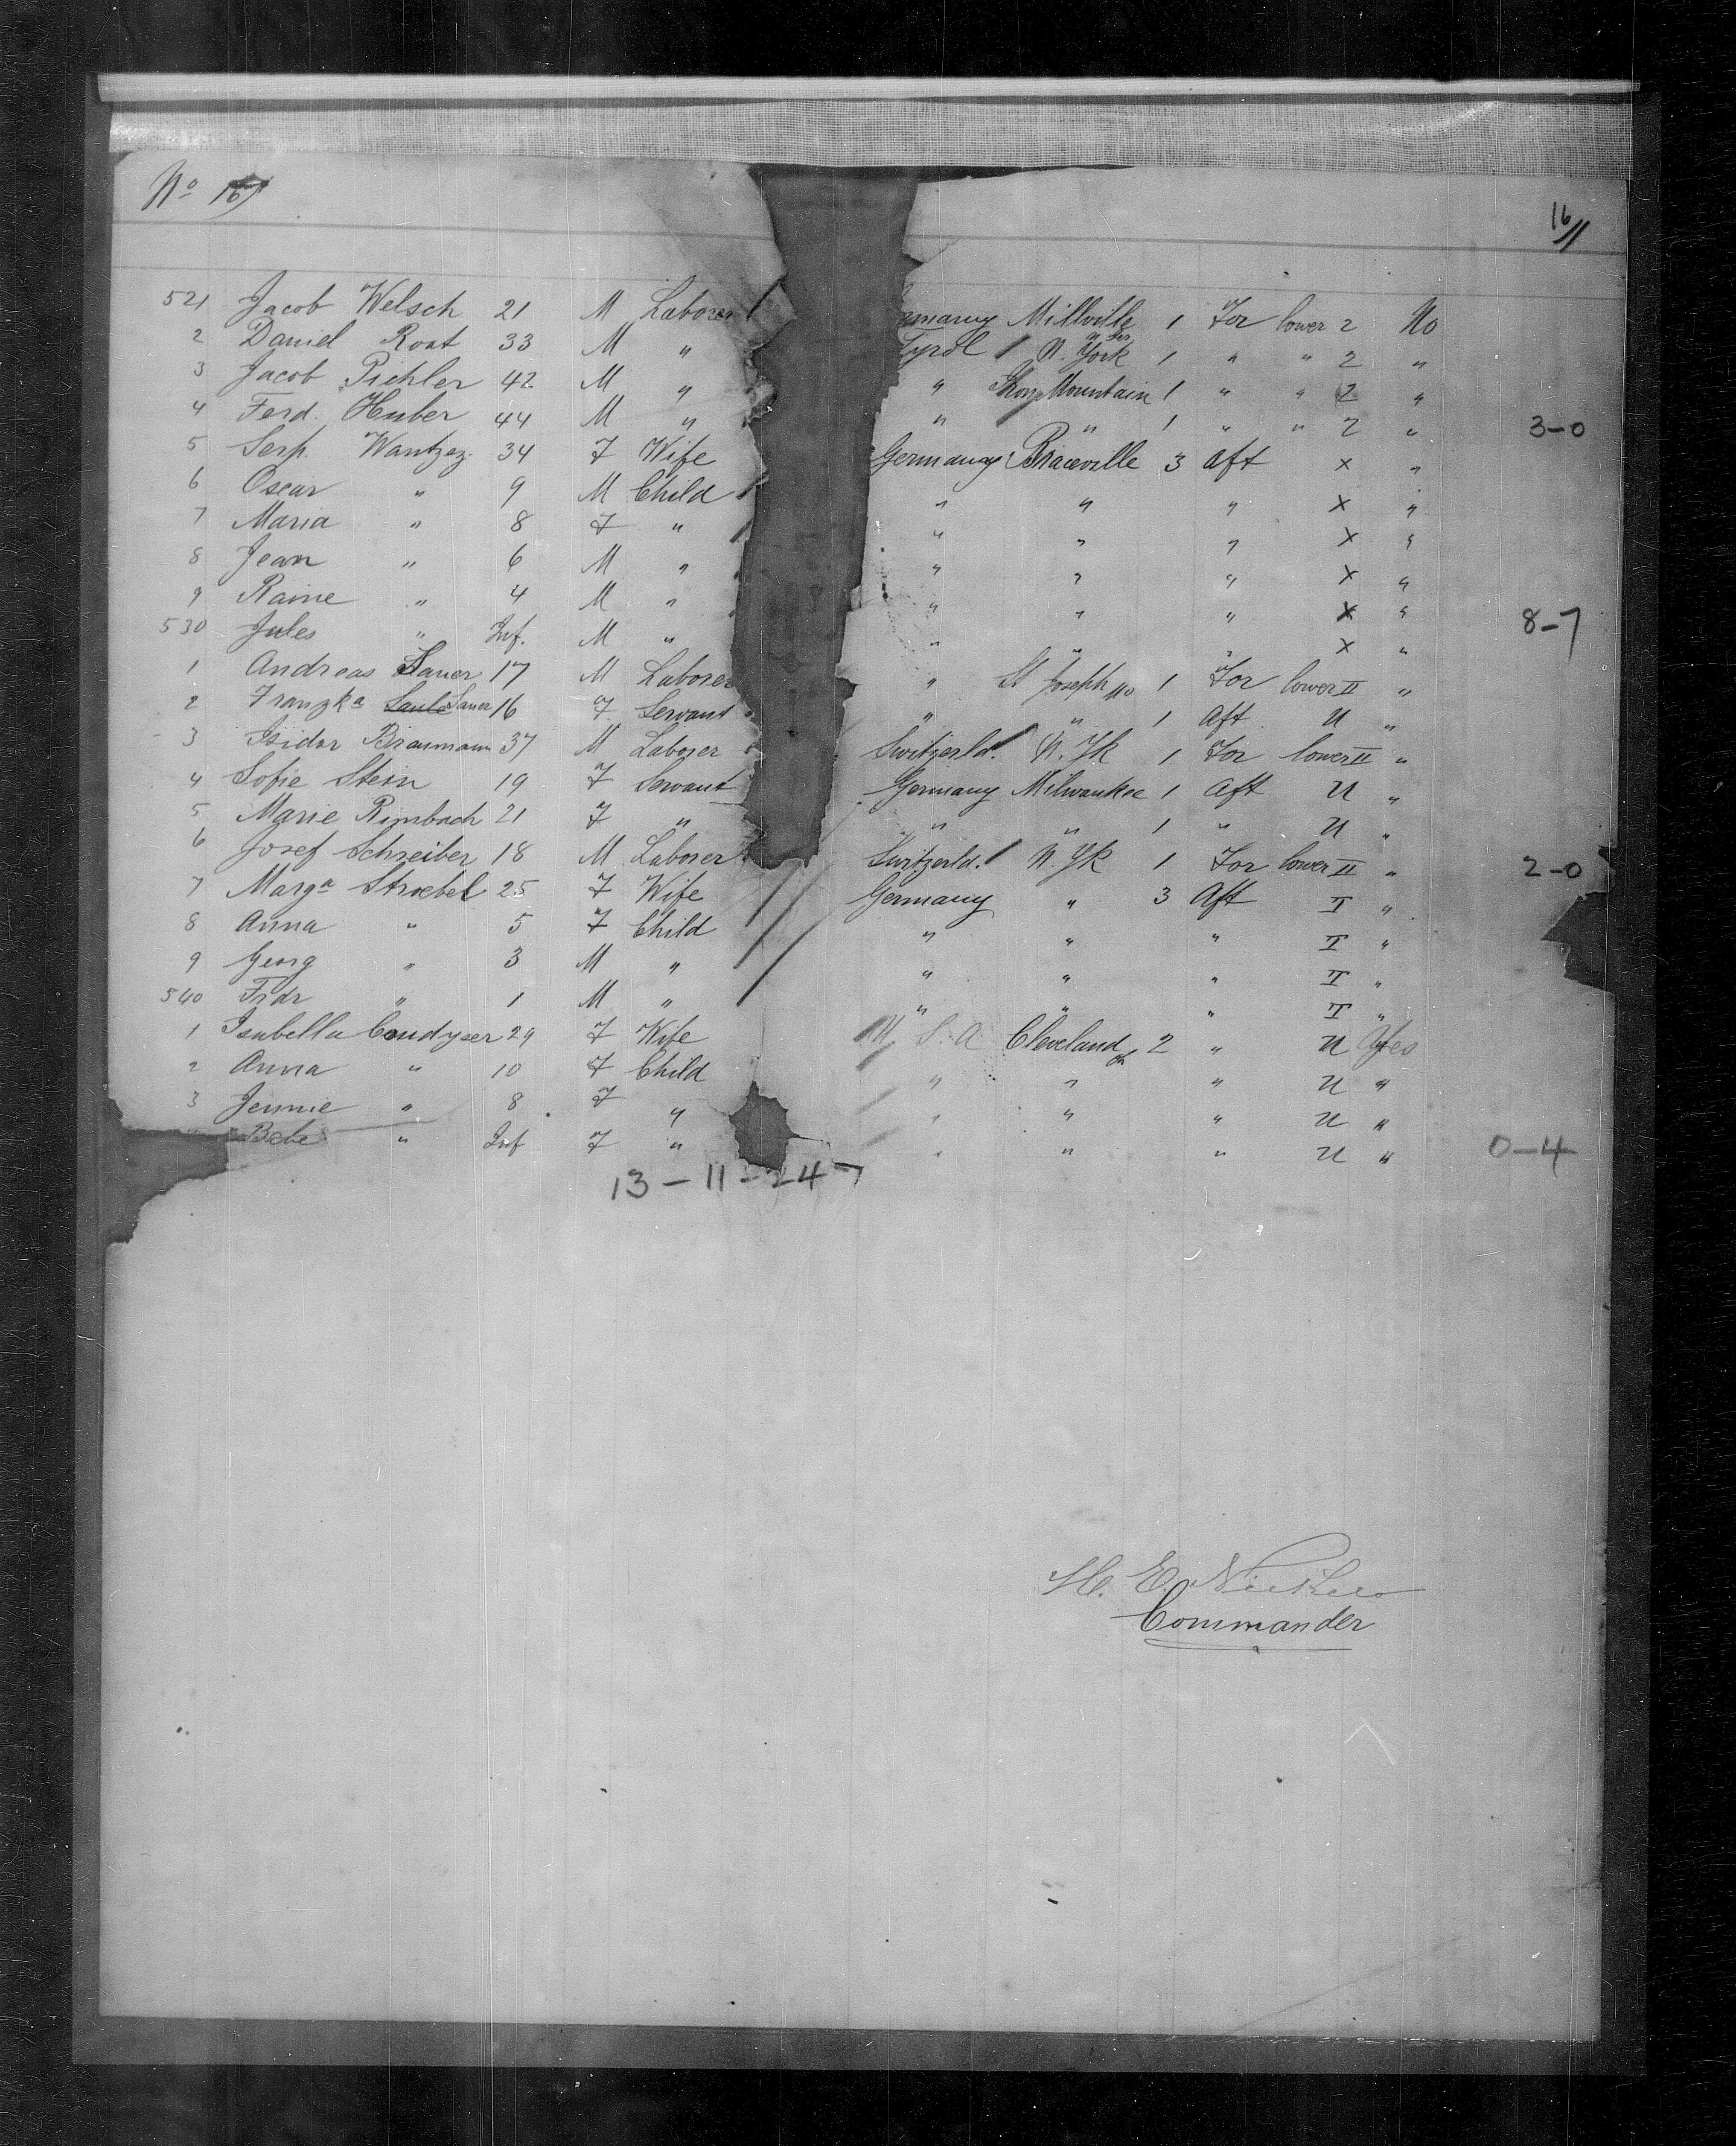 No 16
16/11
521 Jacob Welsch 21 M Laborer Germany Millville N. Jer. 1 For lower 2 No
2 Daniel Roat 33 M " Tyrol N. York 1 " " 2 "
3 Jacob Pichler 42 M " " Mountain 1 " " 2 "
4 Ferd. Huber 44 M " " " 1 " " 2 " 3-0
5 Serp. Wantzez 34 F Wife Germany Braceville 3 Aft X "
6 Oscar " 9 M Child " " " X "
7 Maria " 8 F " " " " X "
8 Jean " 6 M " " " " X "
9 Raine " 4 M " " " " X "
530 Jules " Inf. M " " " " X " 8-7
1 Andreas Sauer 17 M Laborer " St Joseph Mo 1 For lower II "
2 Franzka Sauer 16 F Servant " " 1 Aft U "
3 Isidor Braumann 37 M Laborer Switzerld. N. Yk 1 For lower II "
4 Sofie Stein 19 F Servant Germany Milwaukee 1 Aft U "
5 Marie Rimbach 21 F " " " 1 " U "
6 Josef Schreiber 18 M Laborer Switzerld. N. Yk 1 For lower II " 2-0
7 Marga Stroebel 25 F Wife Germany " 3 Aft II "
8 Anna " 5 F Child " " " II "
9 Georg " 3 M " " " " II "
540 Frdr " 1 M " " " " II "
1 Isabella 29 F Wife U. S. A Cleveland Oh 2 " U Yes
2 Anna " 10 F Child " " " U "
3 Jennie " 8 F " " " " U "
Bebe " Inf F " " " " U " 0-4
13-11-24-7
H. E.
Commander